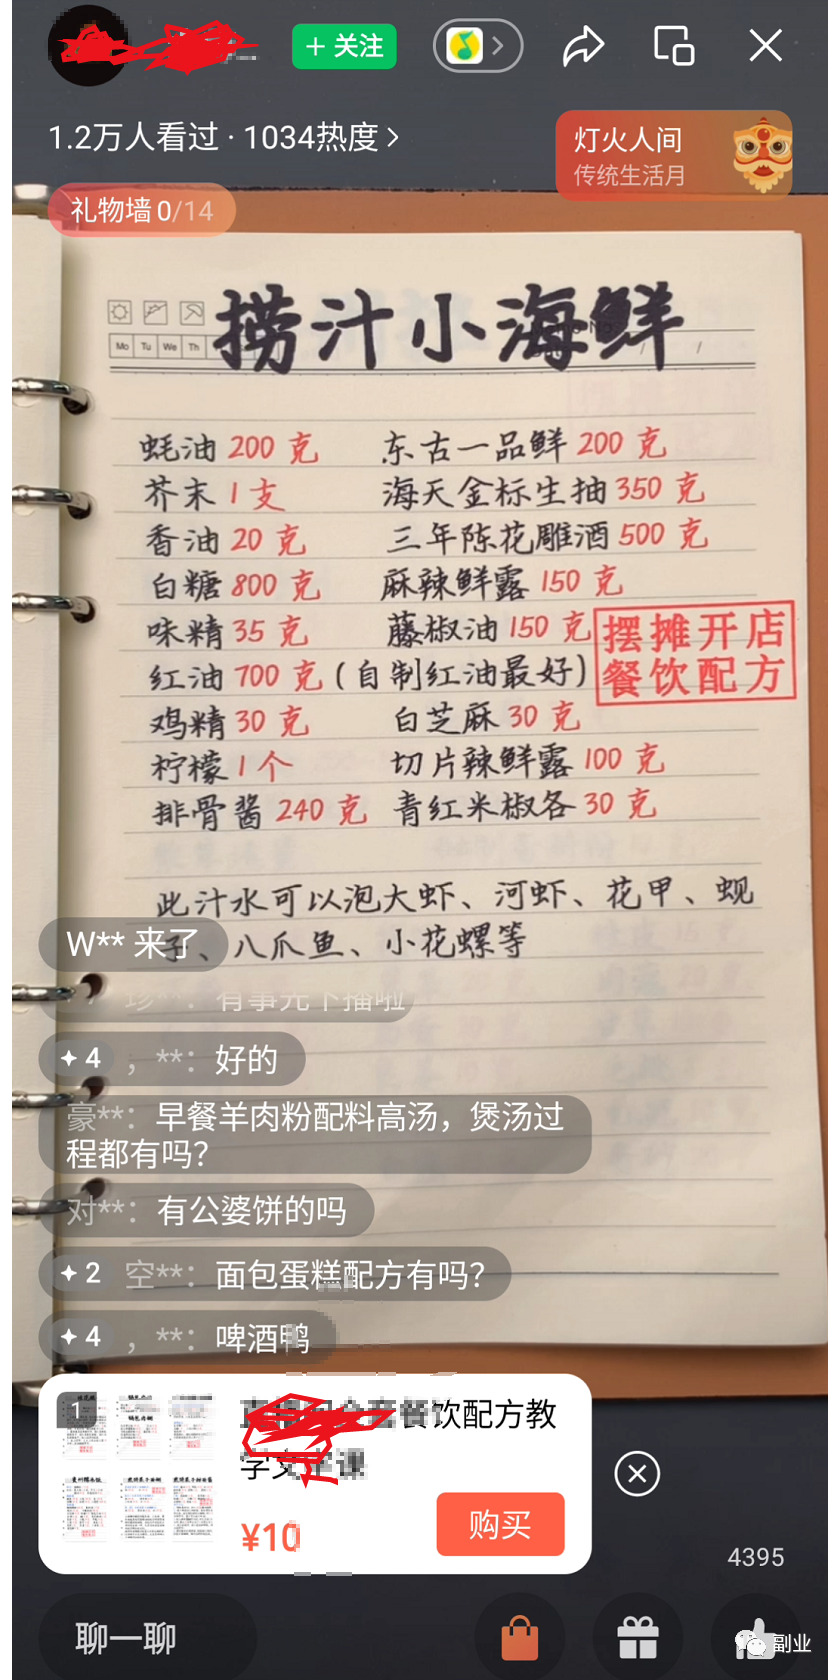 + 关注
1.2万人看过 · 1034热度 >
灯火人间
传统生活月
礼物墙 0/14
捞汁小海鲜
Mo Tu We Th
蚝油 200 克 东古一品鲜 200 克
芥末 1 支 海天金标生抽 350 克
香油 20 克 三年陈花雕酒 500 克
白糖 800 克 麻辣鲜露 150 克
味精 35 克 藤椒油 150 克
红油 700 克 (自制红油最好)
摆摊开店
餐饮配方
鸡精 30 克 白芝麻 30 克
柠檬 1 个 切片辣鲜露 100 克
排骨酱 240 克 青红米椒各 30 克
此汁水可以泡大虾、河虾、花甲、蚬
子、八爪鱼、小花螺等
W** 来了
珍**：有事先下播啦
4 ，**：好的
豪**：早餐羊肉粉配料高汤，煲汤过
程都有吗?
对**：有公婆饼的吗
2 空**：面包蛋糕配方有吗?
4 ，**：啤酒鸭
1
餐饮配方教
学 课
¥10
购买
4395
聊一聊
副业